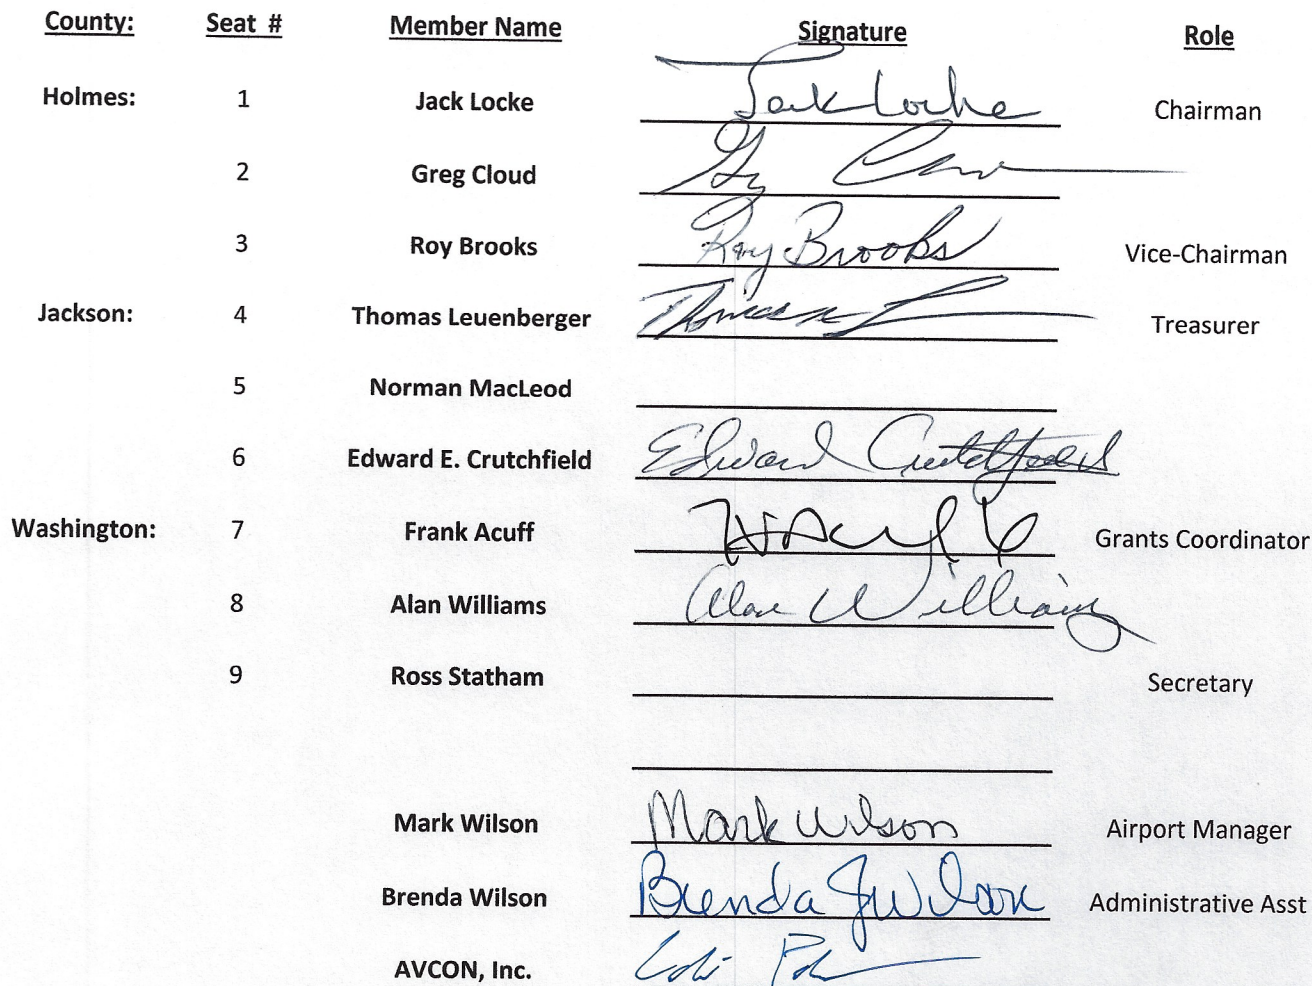 County: Seat # Member Name Signature Role
Holmes: 1 Jack Locke Jack Locke Chairman
2 Greg Cloud
3 Roy Brooks Roy Brooks Vice-Chairman
Jackson: 4 Thomas Leuenberger Thomas Treasurer
5 Norman MacLeod
6 Edward E. Crutchfield Edward Crutchfield
Washington: 7 Frank Acuff Acuff Grants Coordinator
8 Alan Williams Alan Williams
9 Ross Statham Secretary
Mark Wilson Mark Wilson Airport Manager
Brenda Wilson Brenda J Wilson Administrative Asst
AVCON, Inc.